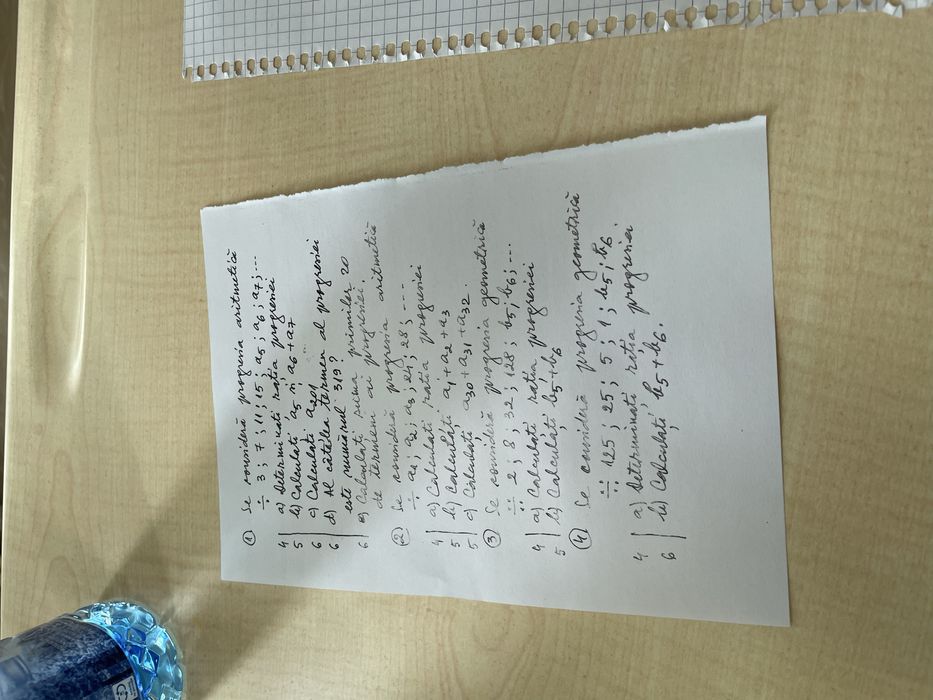 ① Se consideră progresia aritmetică
÷ 3 ; 7 ; 11 ; 15 ; a5 ; a6 ; a7 ; ...
4 | a) Determinati ratia progresiei
5 | b) Calculati a5 și a6 + a7
6 | c) Calculati a201
6 | d) Al câtălea termen al progresiei
este numărul 319?
6 | e) Calculati suma primilor 20
de termeni ai progresiei.
② Se consideră progresia aritmetică
÷ a1 ; a2 ; a3 ; 24 ; 28 ; ...
4 | a) Calculati ratia progresiei
5 | b) Calculati a1 + a2 + a3
5 | c) Calculati a30 + a31 + a32.
③ Se consideră progresia geometrică
∺ 2 ; 8 ; 32 ; 128 ; b5 ; b6 ; ...
4 | a) Calculati ratia progresiei
5 | b) Calculati b5 + b6
④ Se consideră progresia geometrică
∺ 125 ; 25 ; 5 ; 1 ; b5 ; b6.
4 | a) Determinati ratia progresiei
6 | b) Calculati b5 + b6.